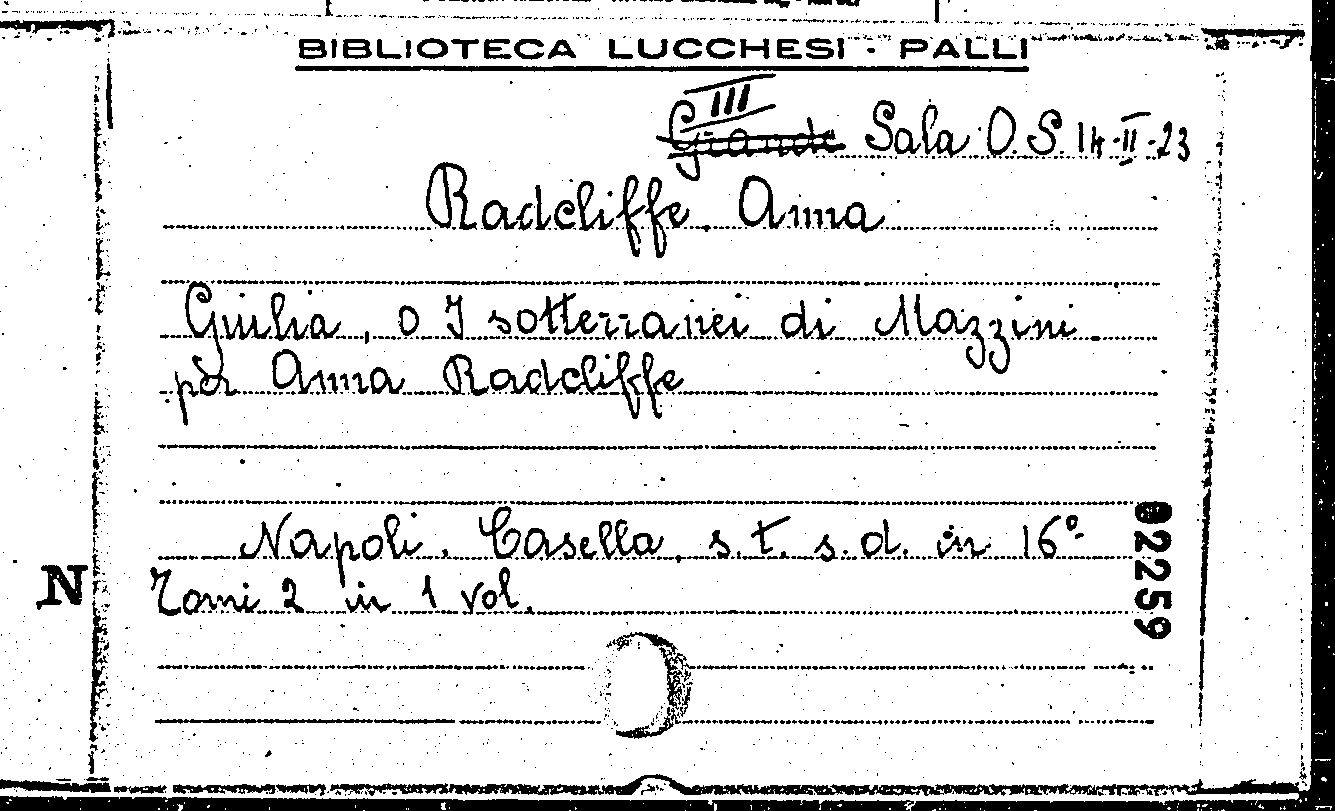 BIBLIOTECA LUCCHESI - PALLI
III
Grande Sala O. S. 14-II-23
Radcliffe Anna
Giulia, o I sotterranei di Mazzini
per Anna Radcliffe
Napoli. Casella, s.t. s.d. in 16°
Tomi 2 in 1 vol.
N
02259